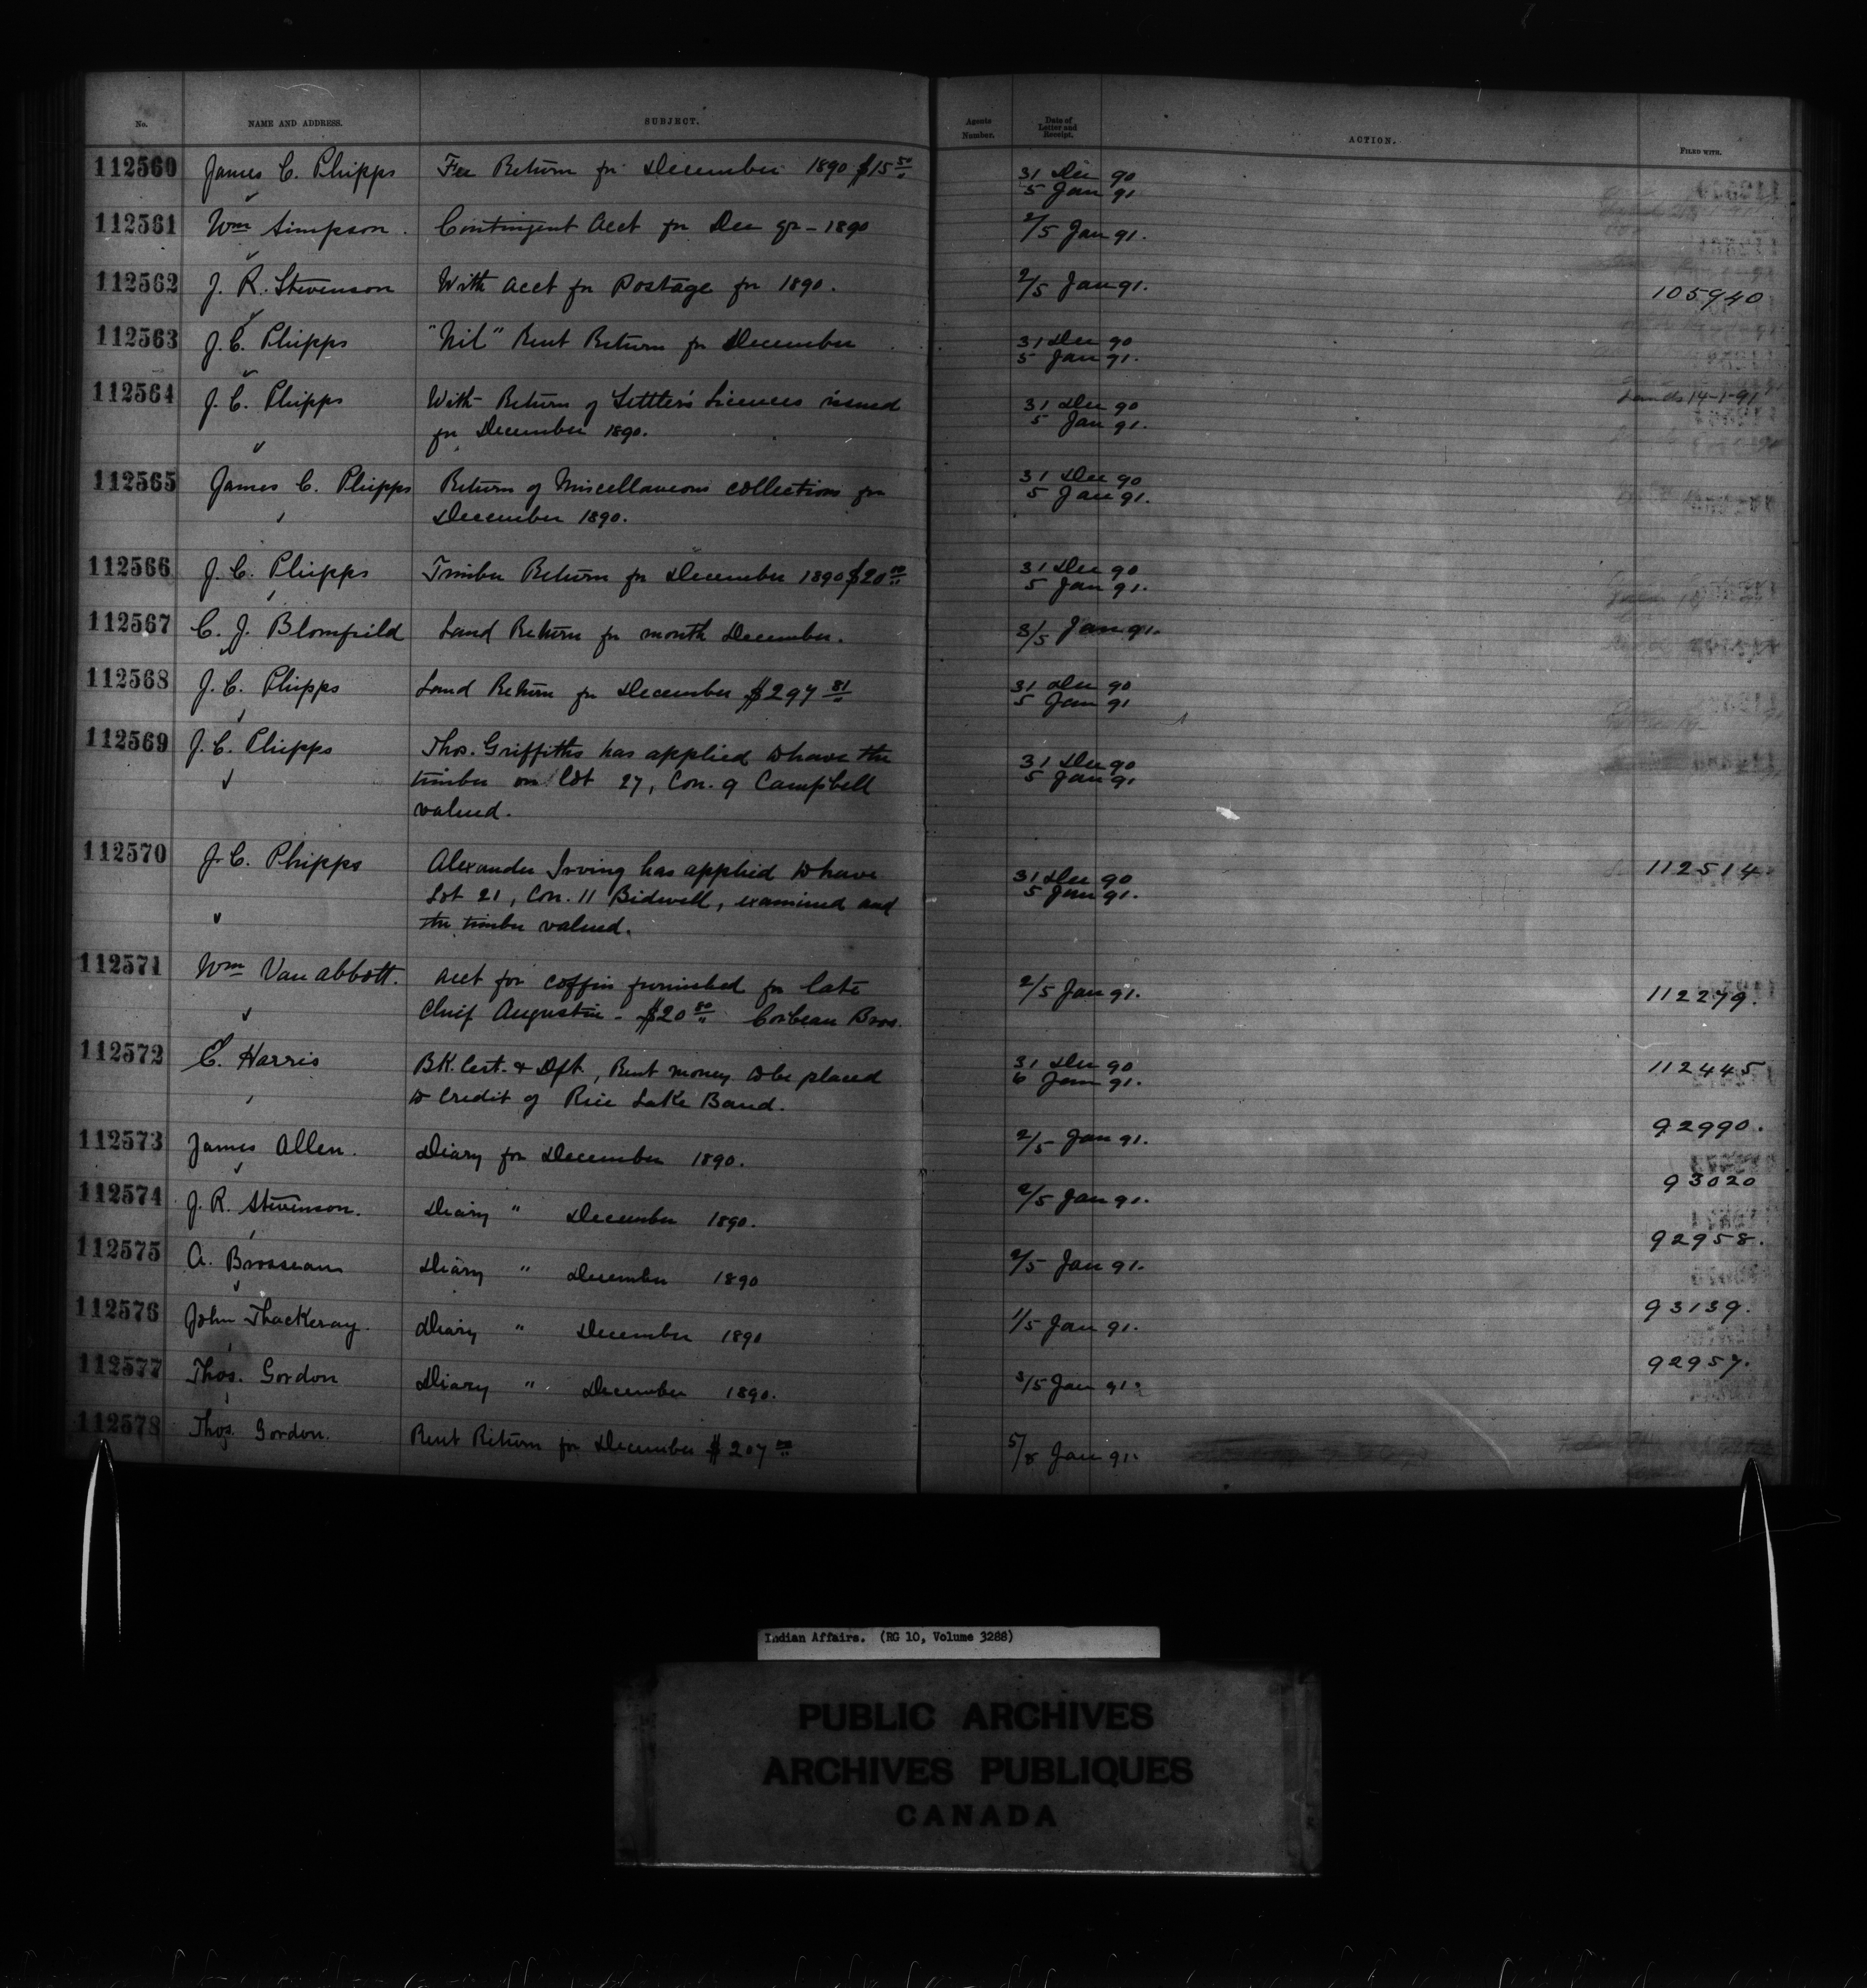 No. NAME AND ADDRESS. SUBJECT. Agents Number. Date of Letter and Receipt. ACTION. FILED WITH.
112560 James C. Phipps Fee Return for December 1890 $15 50/" 31 Dec 90
5 Jan 91.
112561 Wm Simpson. Contingent Acct for Dec qr - 1890 2/5 Jan 91.
112562 J. R. Stevenson With Acct for Postage for 1890. 2/5 Jan 91. 105940
112563 J. C. Phipps "Nil" Rent Return for December 31 Dec 90
5 Jan 91.
112564 J. C. Phipps With Return of Settler's Licences issued 31 Dec 90 Lands 14-1-91
for December 1890. 5 Jan 91.
112565 James C. Phipps Return of Miscellaneous collections for 31 Dec 90
December 1890. 5 Jan 91.
112566 J. C. Phipps Timber Return for December 1890 $20 00/" 31 Dec 90
5 Jan 91.
112567 C. J. Blomfield Land Return for month December. 3/5 Jan 91.
112568 J. C. Phipps Land Return for December $297 81/" 31 Dec 90
5 Jan 91
112569 J. C. Phipps Thos. Griffiths has applied to have the 31 Dec 90
timber on Lot 27, Con. 9 Campbell 5 Jan 91
valued.
112570 J. C. Phipps Alexander Irving has applied to have 31 Dec 90 112514
Lot 21, Con. 11 Bidwell, examined and 5 Jan 91.
the timber valued.
112571 Wm Van Abbott. Acct for coffin furnished for late 2/5 Jan 91. 112279.
Chief Augustin - $20 80/" Corbeau Bros.
112572 C. Harris BK. Cert. & Dft., Rent money to be placed 31 Dec 90 112445
to credit of Rice Lake Band. 6 Jan 91.
112573 James Allen. Diary for December 1890. 2/5 Jan 91. 92990.
112574 J. R. Stevenson. Diary " December 1890. 2/5 Jan 91. 93020
112575 A. Brosseau Diary " December 1890 2/5 Jan 91. 92958.
112576 John Thackeray. Diary " December 1890 1/5 Jan 91. 93139.
112577 Thos. Gordon Diary " December 1890. 3/5 Jan 91. 92957.
112578 Thos. Gordon. Rent Return for December $207 00/" 5/8 Jan 91.
Indian Affairs. (RG 10, Volume 3288)
PUBLIC ARCHIVES
ARCHIVES PUBLIQUES
CANADA